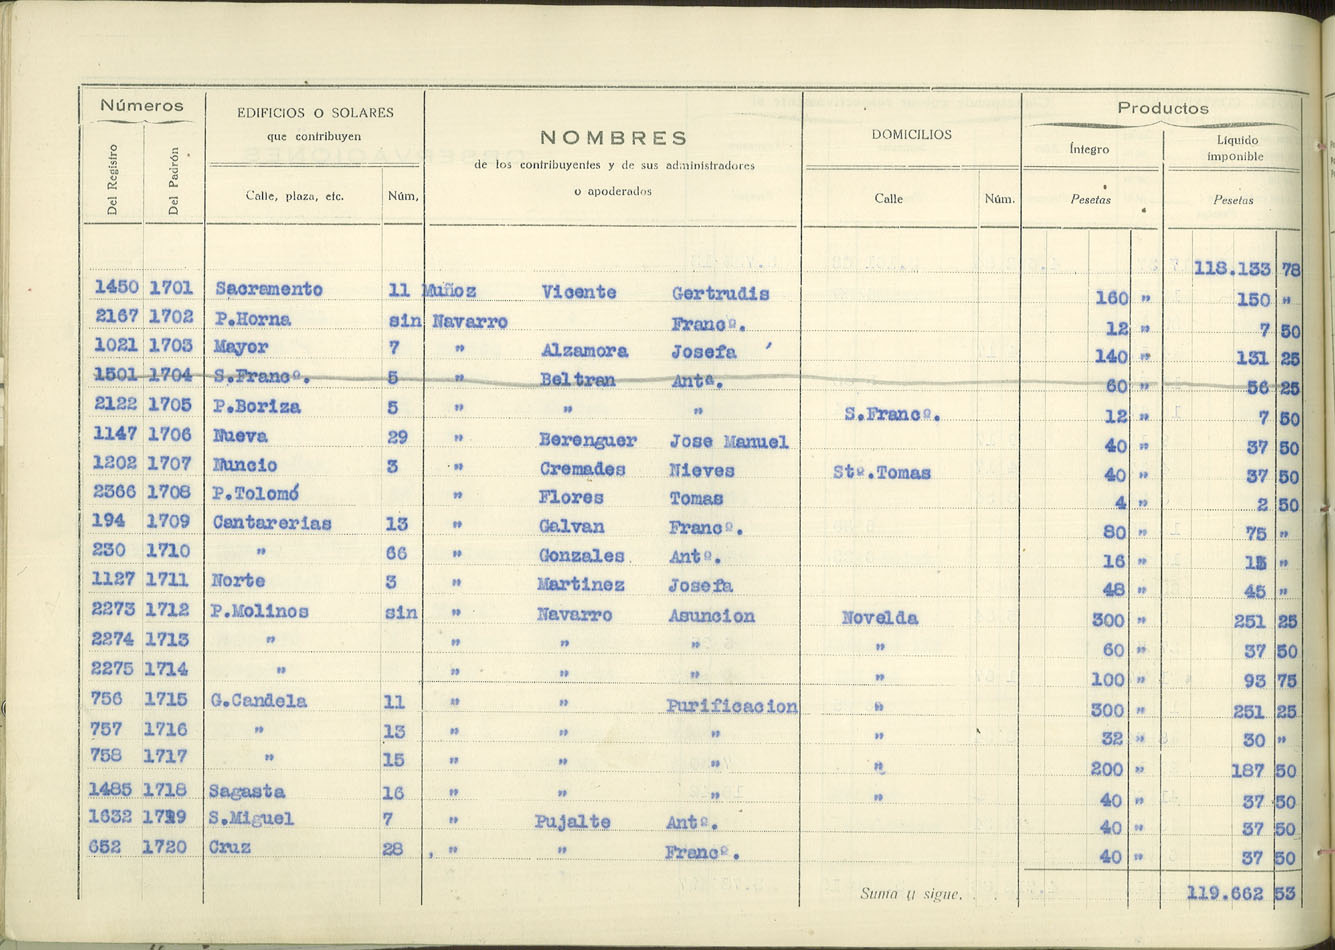 Números
EDIFICIOS O SOLARES
que contribuyen
NOMBRES
de los contribuyentes y de sus administradores
o apoderados
DOMICILIOS
Productos
Íntegro
Líquido
imponible
Del Registro
Del Padrón
Calle, plaza, etc.
Núm,
Calle
Núm.
Pesetas
Pesetas
118.133 78
1450 1701 Sacramento 11 Muñoz Vicente Gertrudis 160 " 150 "
2167 1702 P.Horna sin Navarro Francº. 12 " 7 50
1021 1703 Mayor 7 " Alzamora Josefa 140 " 131 25
1501 1704 S.Francº. 5 " Beltran Antª. 60 " 56 25
2122 1705 P.Boriza 5 " " " S.Francº. 12 " 7 50
1147 1706 Nueva 29 " Berenguer Jose Manuel 40 " 37 50
1202 1707 Nuncio 3 " Cremades Nieves Stº.Tomas 40 " 37 50
2366 1708 P.Tolomó " Flores Tomas 4 " 2 50
194 1709 Cantarerias 13 " Galvan Francº. 80 " 75 "
230 1710 " 66 " Gonzales Antº. 16 " 15 "
1127 1711 Norte 3 " Martinez Josefa 48 " 45 "
2273 1712 P.Molinos sin " Navarro Asuncion Novelda 300 " 251 25
2274 1713 " " " " " 60 " 37 50
2275 1714 " " " " " 100 " 93 75
756 1715 G.Candela 11 " " Purificacion " 300 " 251 25
757 1716 " 13 " " " " 32 " 30 "
758 1717 " 15 " " " " 200 " 187 50
1485 1718 Sagasta 16 " " " " 40 " 37 50
1632 1719 S.Miguel 7 " Pujalte Antº. 40 " 37 50
652 1720 Cruz 28 " " Francº. 40 " 37 50
Suma y sigue. 119.662 53